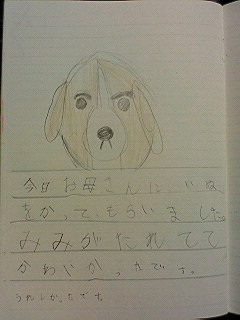 今日お母さんに、いぬ
をかって、もらいました。
みみがたれてて
かわいかったです。
うれしかったです